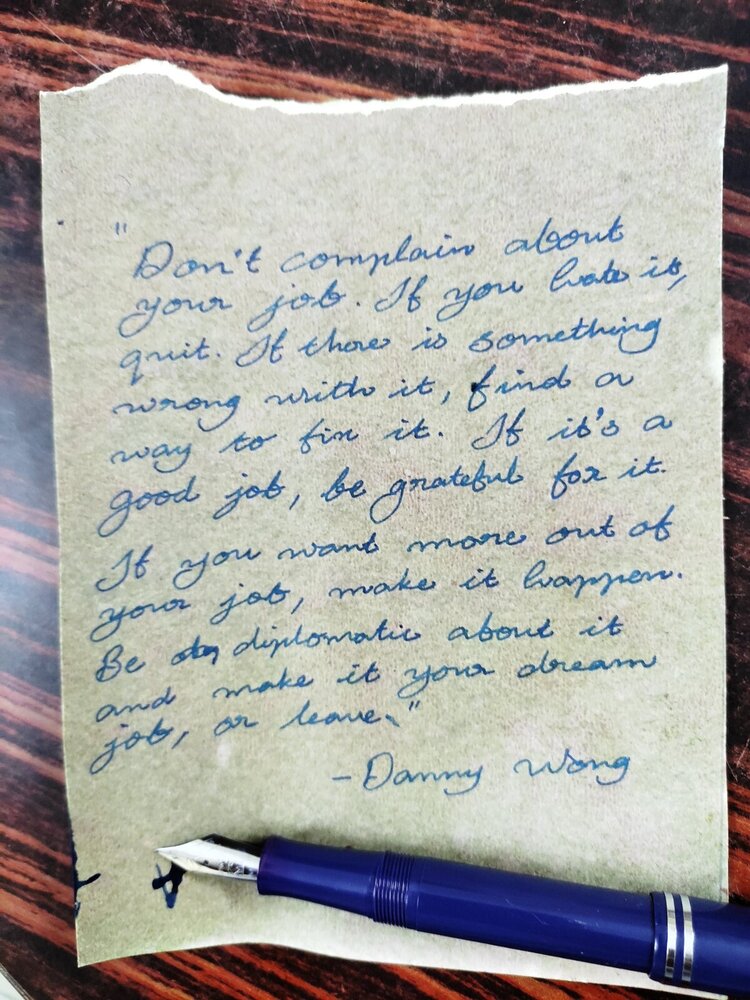 "Don't complain about
your job. If you hate it,
quit. If there is something
wrong with it, find a
way to fix it. If it's a
good job, be grateful for it.
If you want more out of
your job, make it happen.
Be diplomatic about it
and make it your dream
job, or leave."
- Danny Wong